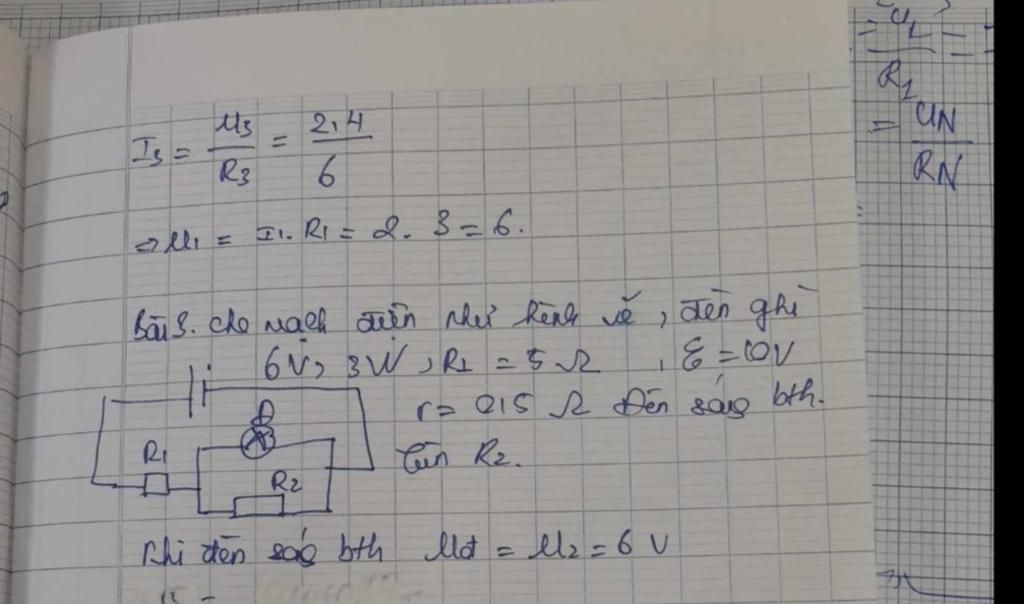 I3 = U3/R3 = 2,4/6
⇒ U1 = I1. R1 = 2. 3 = 6.
Bài 3. cho mạch điện như hình vẽ, đèn ghi
6V, 3W, R1 = 5 Ω, ε = 10V
r = 0,5 Ω Đèn sáng bth.
Tìm R2.
Đ
R1
R2
Khi đèn sáng bth Uđ = U2 = 6 V
= U1/R1 =
= UN/RN